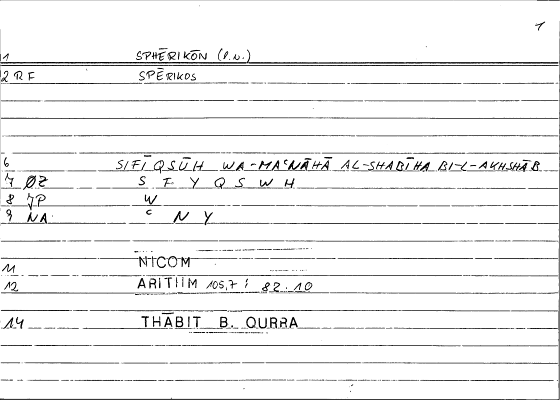 1
1 SPHĒRIKŌN (P.N.)
2 RF SPĒRIKOS
6 SIFĪQSŪH WA-MAʿNĀHĀ AL-SHABĪHA BI-L-AKHSHĀB
7 ØZ S F Y Q S W H
8 JP W
9 NA ʿ N Y
11 NICOM
12 ARITIIM 105,7; 82.10
14 THĀBIT B. QURRA